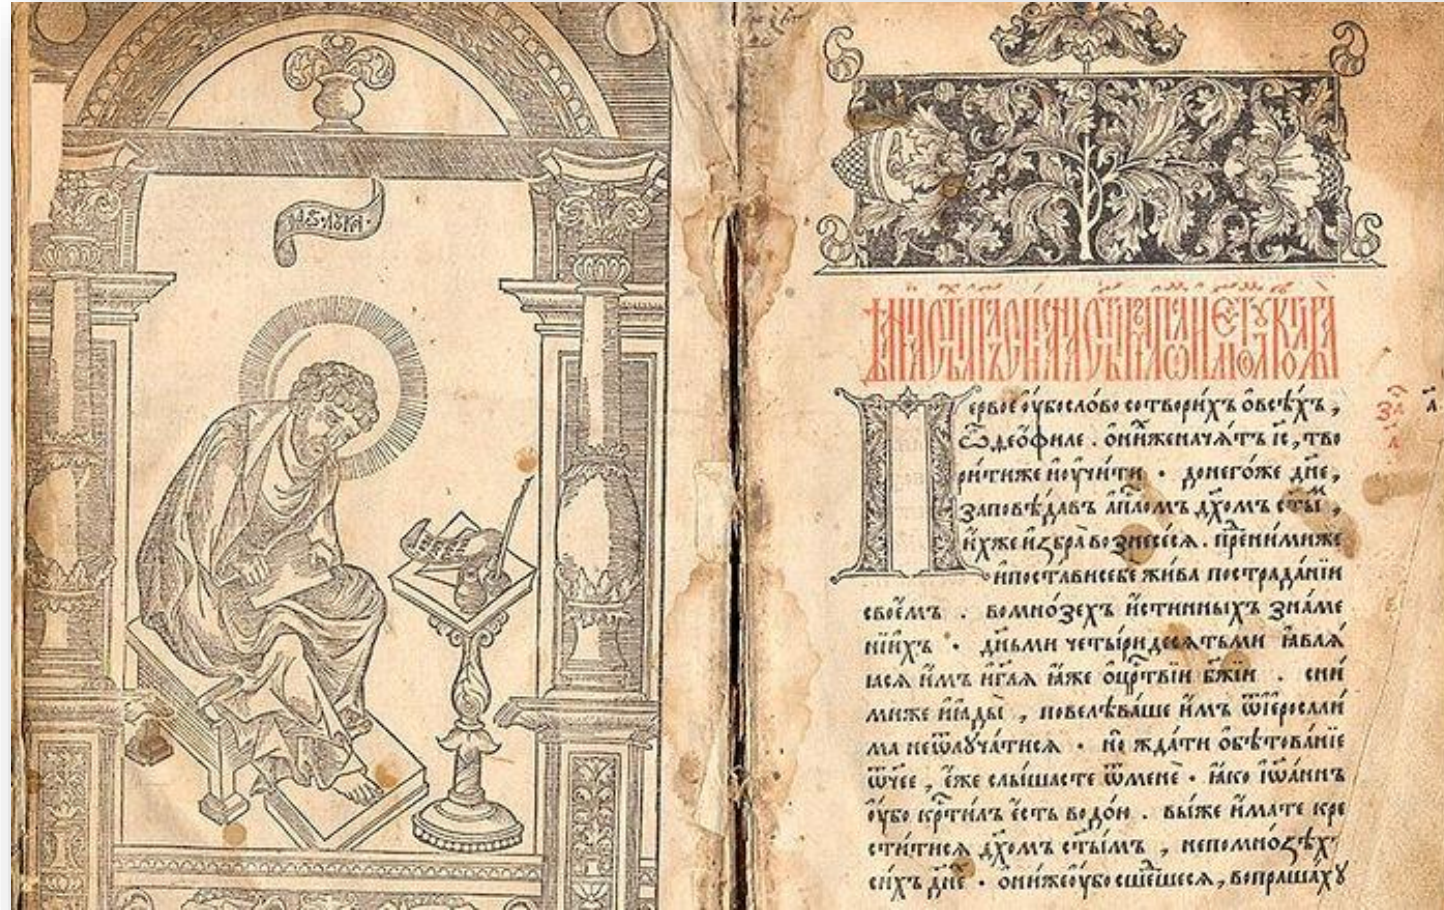 лѹка
Первое ᲂу҆́бо сло́во сотвори́хъ ѡ҆ всѣ́хъ,
ѽ Ѳео́филе . ѡ҆ ни́хже нача́тъ і҆с҃, тво
ри́ти же и҆ ᲂу҆чи́ти · до него́же дн҃е,
заповѣ́давъ а҆пⷭ҇ломъ дх҃омъ ст҃ы́ⷨ,
и҆́хже и҆збра̀ вознесе́сѧ . пред̾ ни́ми же
и҆ поста́ви себе жи́ва по страда́нїи
свое́мъ . во мно́зехъ и҆́стинныхъ зна́ме
нїи҆хъ · дн҃ьми четы́ридесѧтьми ꙗ҆влѧ́
ꙗсѧ и҆̀мъ и҆ гл҃ѧ ꙗ҆́же ѡ҆ црⷭ҇твїи бж҃їи . с ни́
ми же и҆ ꙗ҆ды̀ , повелѣва́ше и҆̀мъ ѿ і҆еросали́
ма не ѿлꙋча́тисѧ · но жда́ти ѡ҆бѣтова́нїе
ѿчее , є҆́же слы́шасте ѿ менѐ · ꙗ҆́ко і҆ѡа́ннъ
ᲂу҆́бо крⷭ҇ти́лъ є҆́сть водо́ю . вы́ же и҆́мате кре
сти́тисѧ дх҃омъ ст҃ы́мъ , не по мно́ѕѣхъ
си́хъ дн҃е · ѻ҆ни́ же ᲂу҆́бо сше́дшесѧ, вопраша́хꙋ